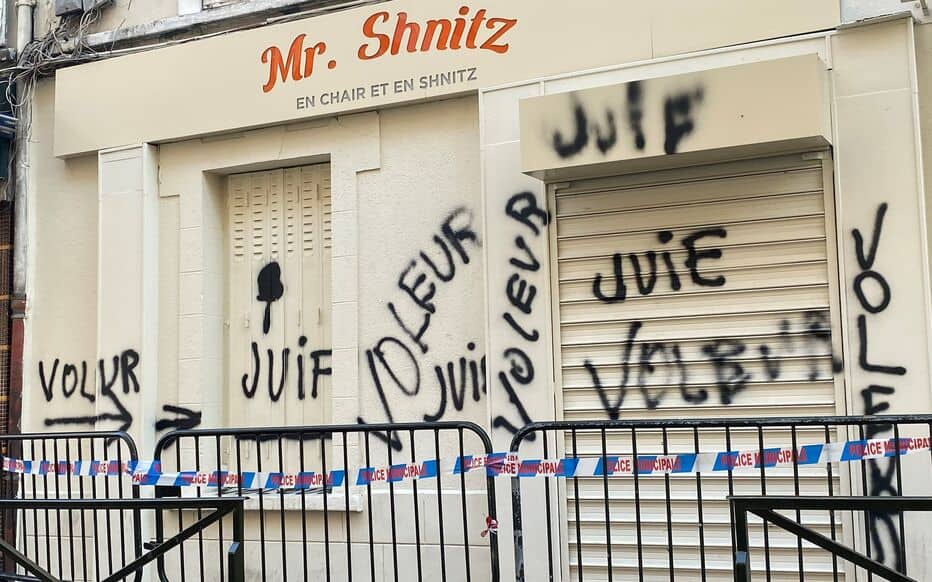 Mr. Shnitz
EN CHAIR ET EN SHNITZ
JUIF
VOLEUR
VOLEUR
JUIE
VOLEUR
VOLUR
JUIF
JUIF
VOLEUR
VOLEUR
POLICE MUNICIPALE
POLICE MUNICIPALE
POLICE MUNICIPALE
POLICE MUNICIPALE
POLICE MUNICIPALE
POLICE MUNICIPALE
POLICE MUNICIPALE